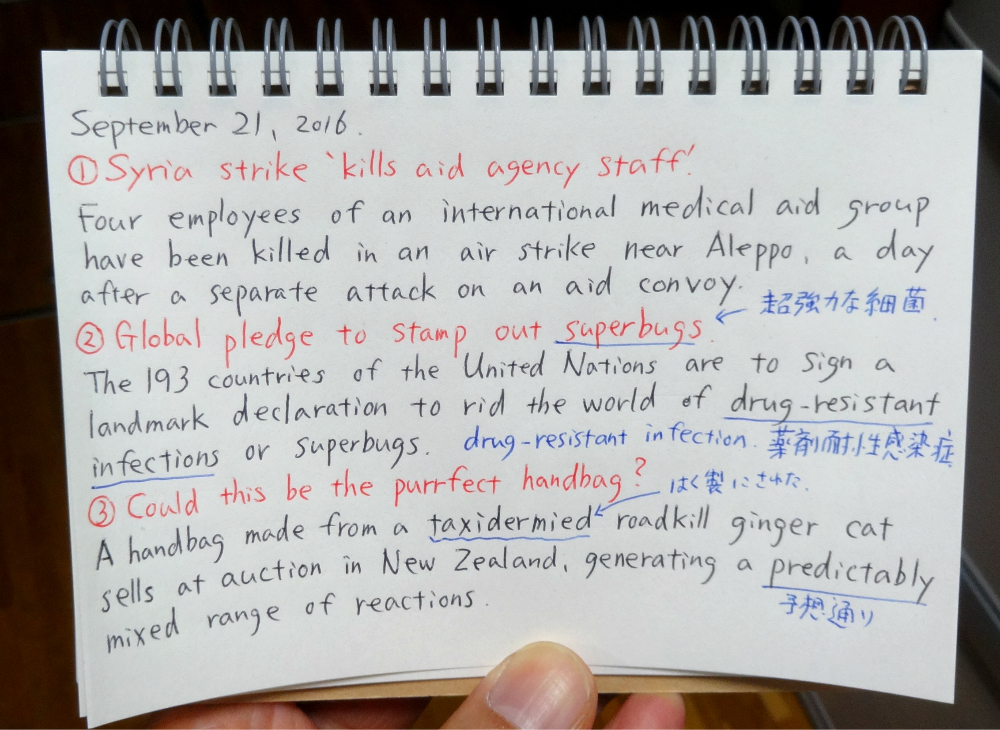 September 21, 2016.
① Syria strike 'kills aid agency staff'
Four employees of an international medical aid group
have been killed in an air strike near Aleppo, a day
after a separate attack on an aid convoy.
② Global pledge to stamp out superbugs ← 超強力な細菌.
The 193 countries of the United Nations are to sign a
landmark declaration to rid the world of drug-resistant
infections or superbugs. drug-resistant infection. 薬剤耐性感染症
③ Could this be the purrfect handbag? はく製にされた.
A handbag made from a taxidermied roadkill ginger cat
sells at auction in New Zealand, generating a predictably
予想通り
mixed range of reactions.